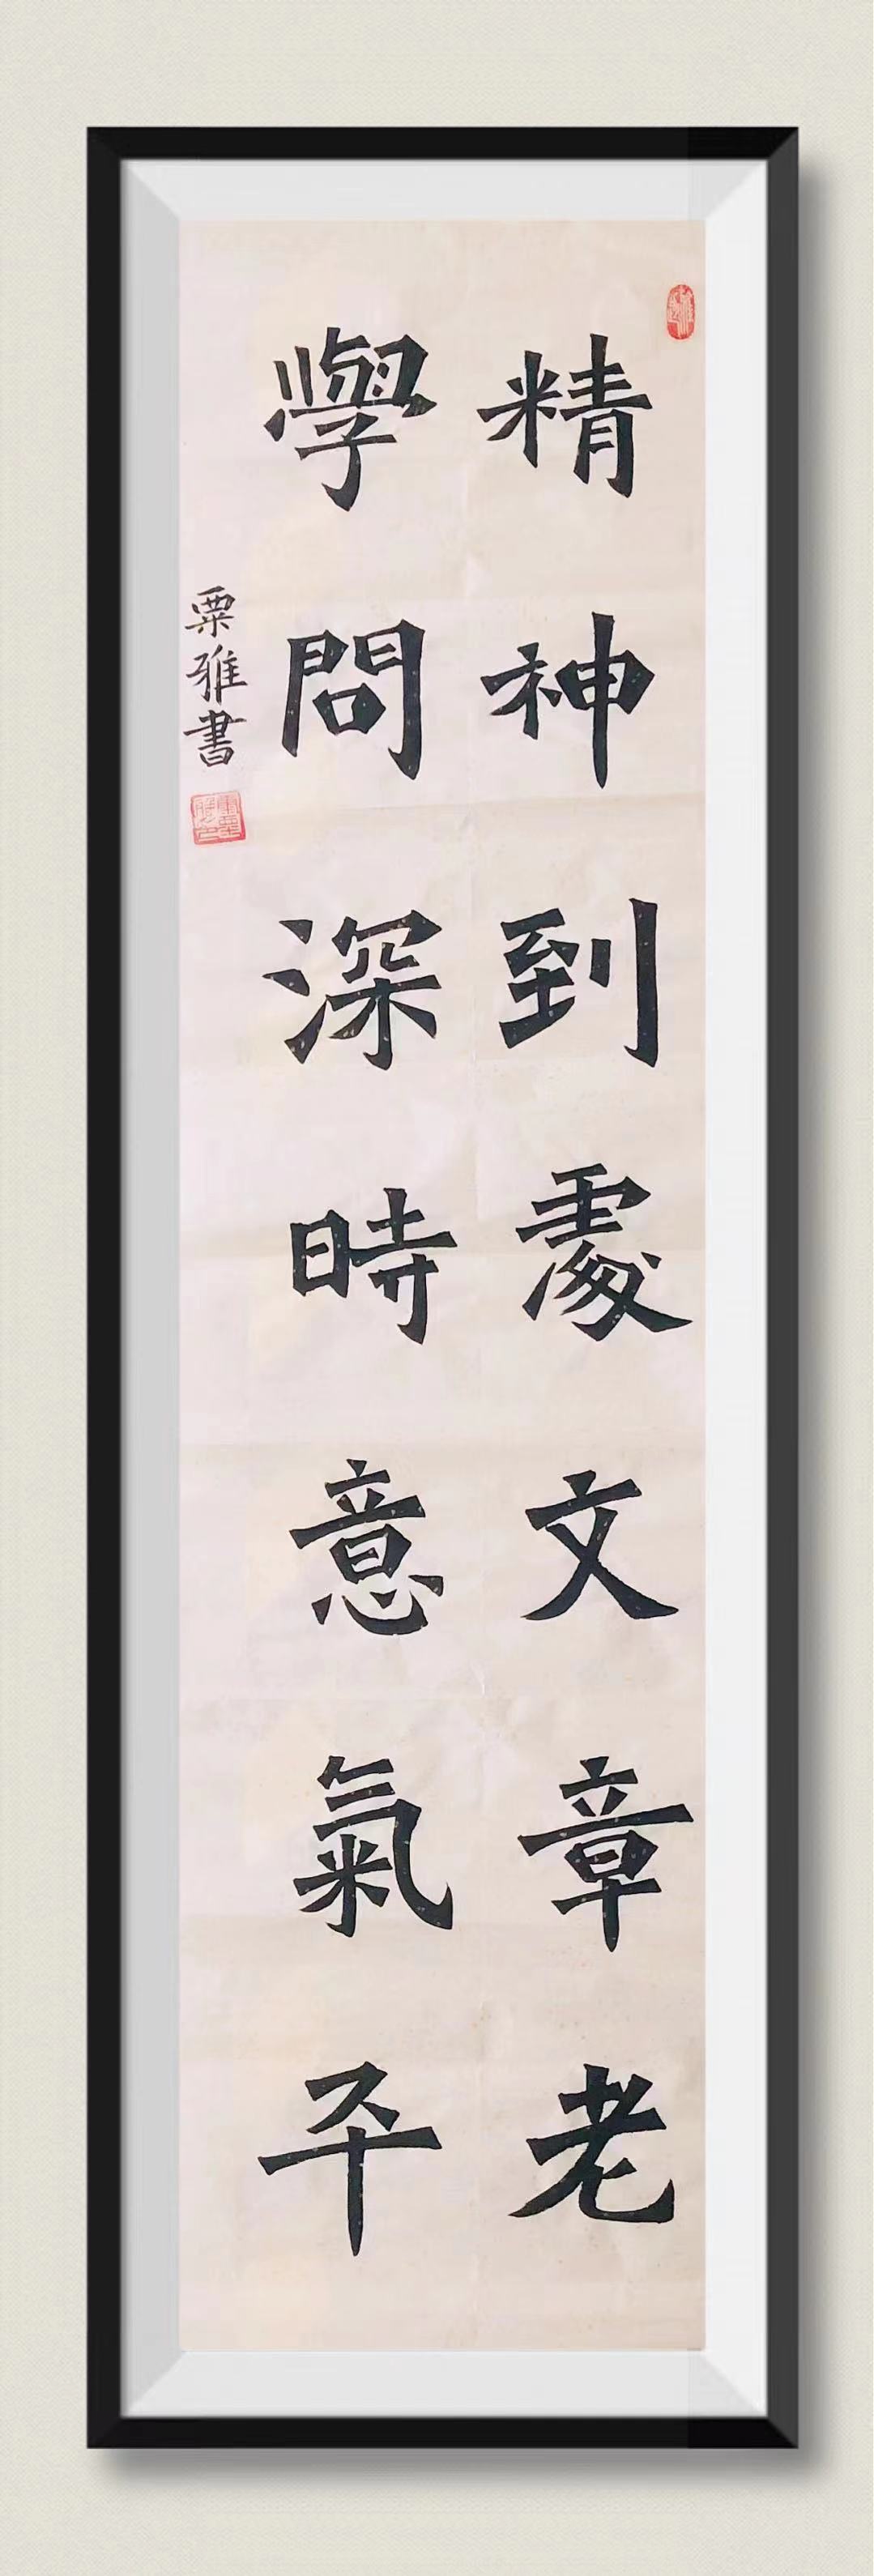 精神到處文章老
學問深時意氣平
粟雅書